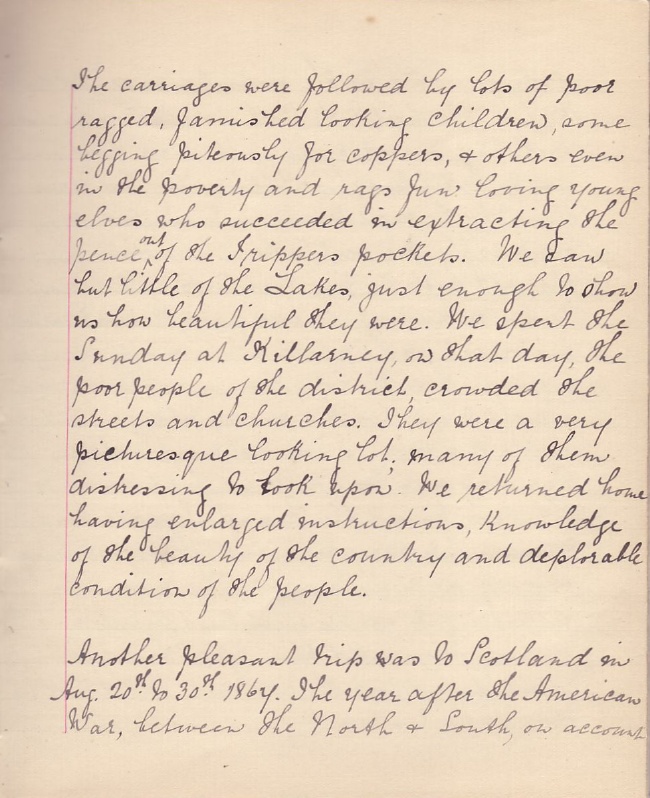 The carriages were followed by lots of poor
ragged, famished looking children, some
begging piteously for coppers, & others even
in the poverty and rags fun loving young
elves who succeeded in extracting the
pence out of the Trippers pockets. We saw
but little of the Lakes, just enough to show
us how beautiful they were. We spent the
Sunday at Killarney, on that day, the
poor people of the district, crowded the
streets and churches. They were a very
picturesque looking lot; many of them
distressing to look upon. We returned home
having enlarged instructions, Knowledge
of the beauty of the country and deplorable
condition of the people.
Another pleasant trip was to Scotland in
Aug. 20th to 30th The year after the American
War, between the North & South, on account